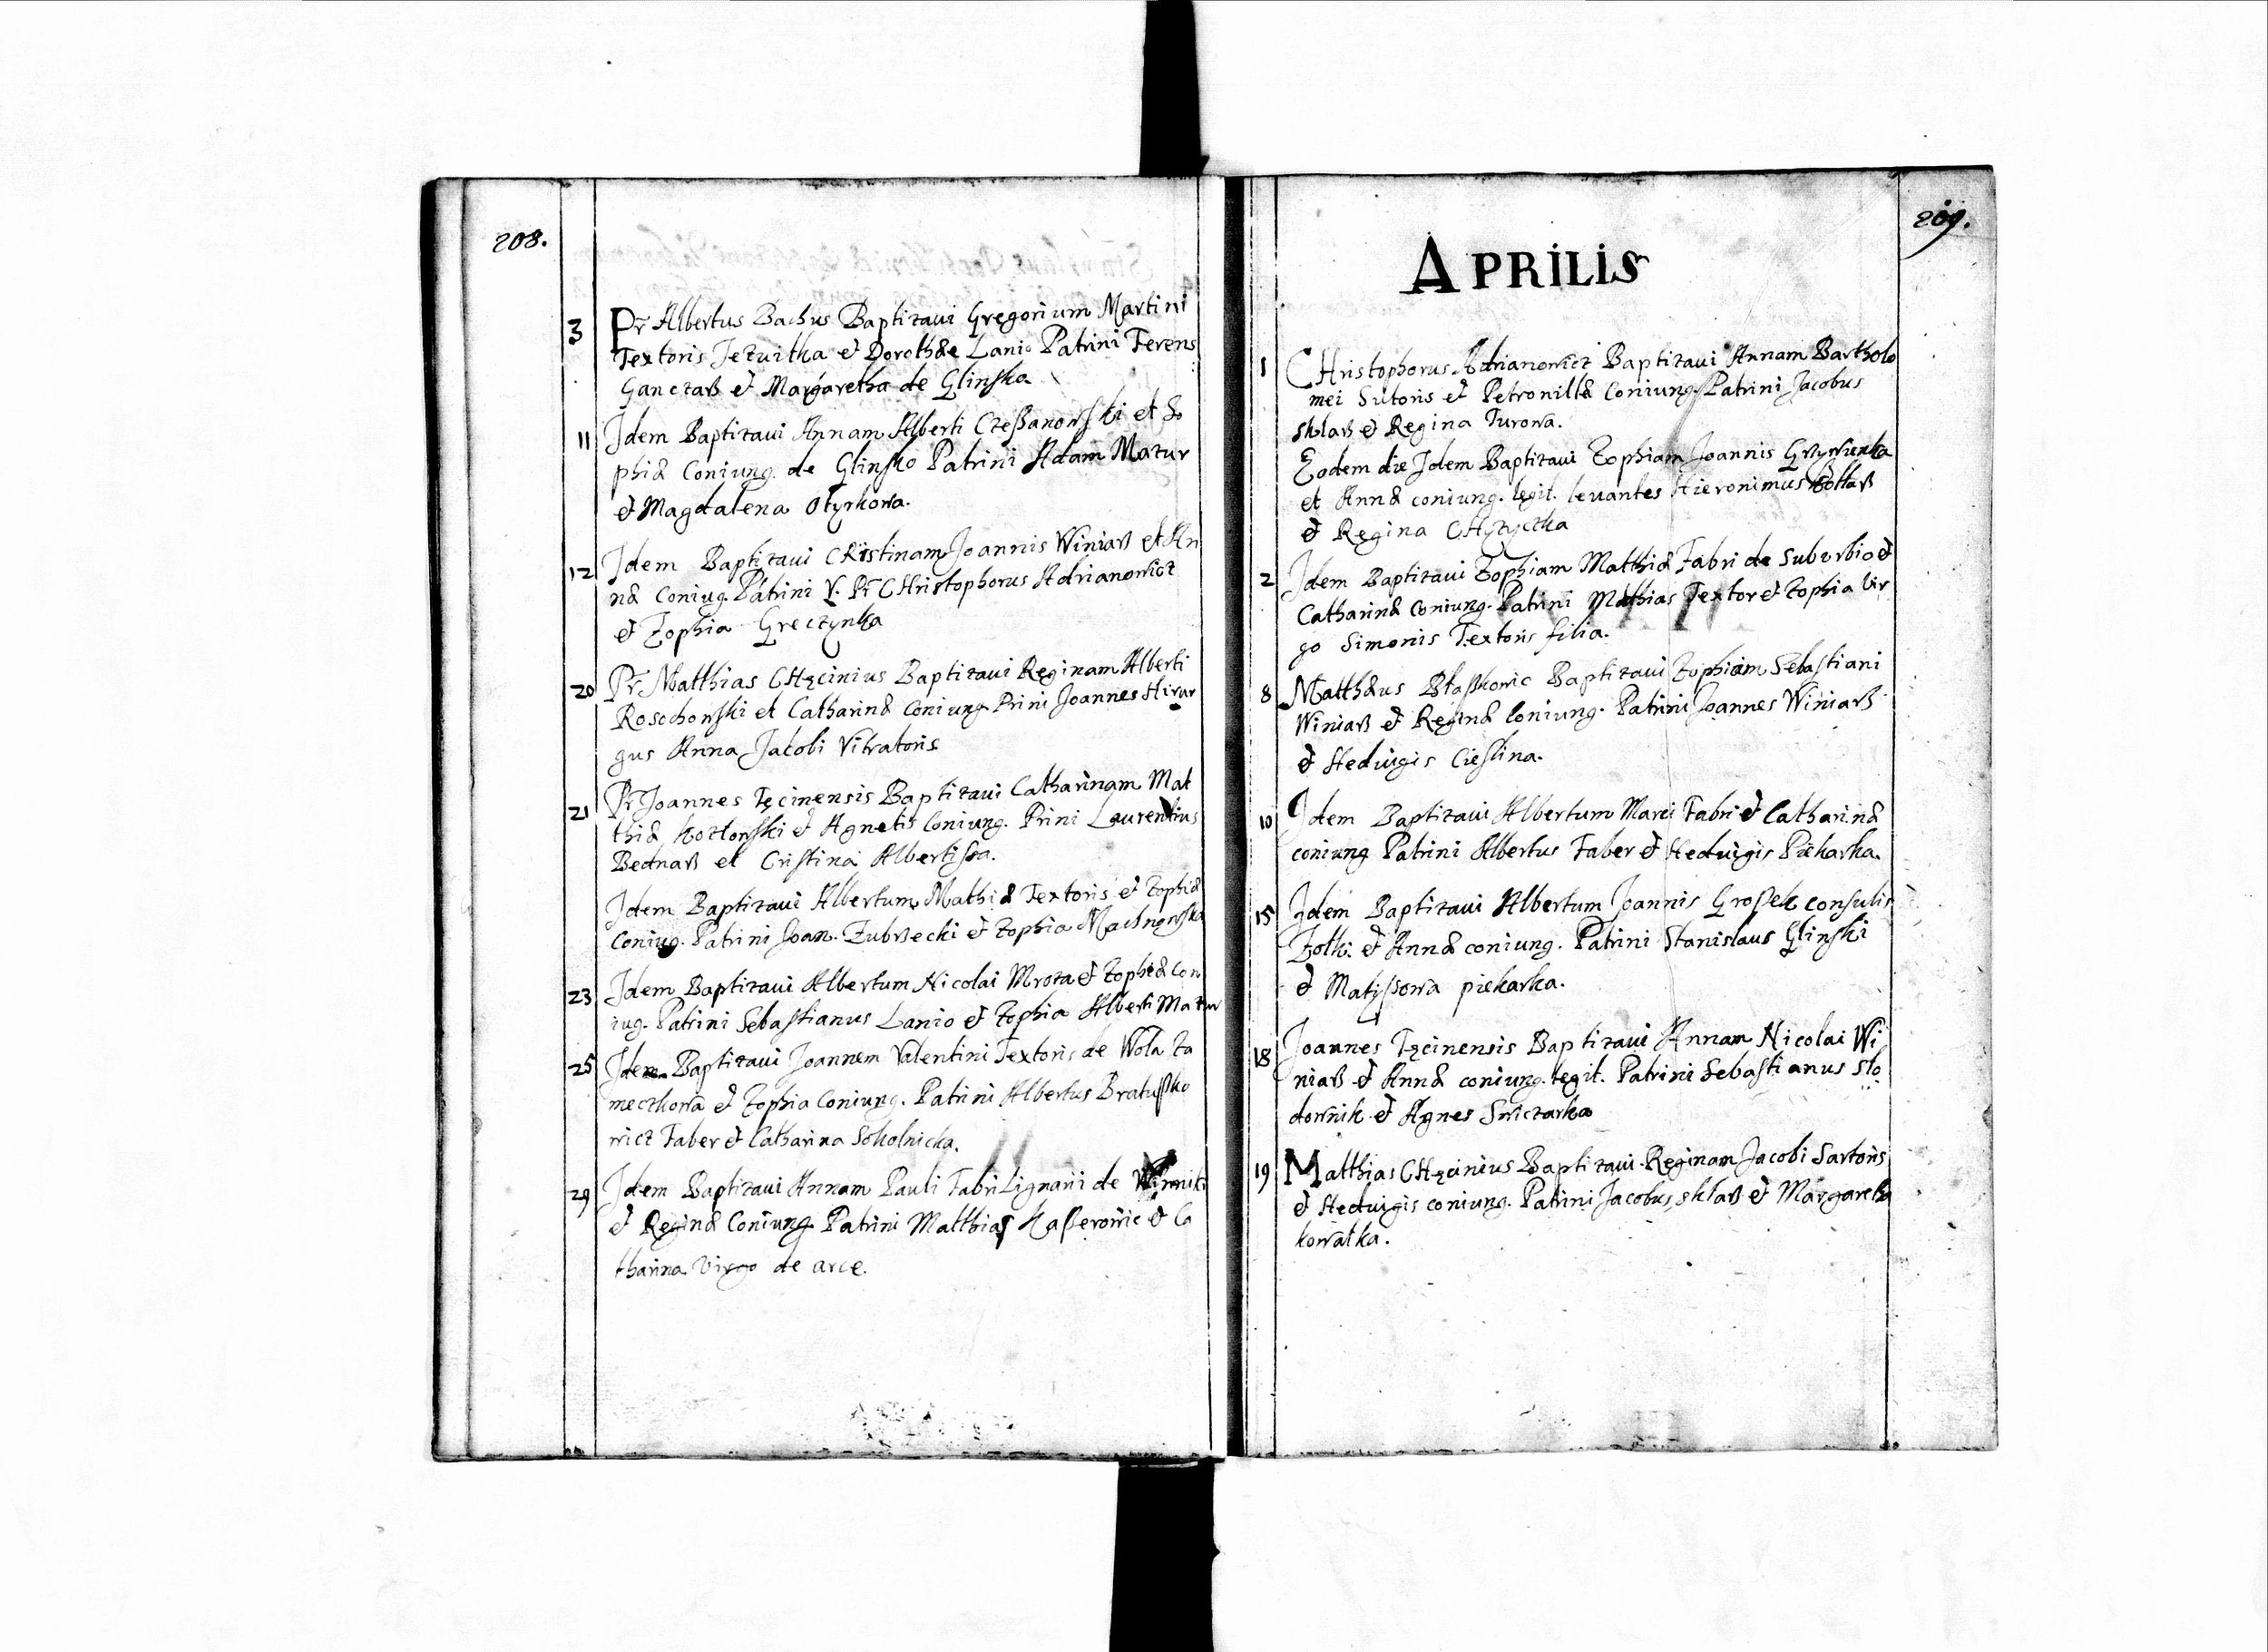 208.
3 Pr Albertus Bachus Baptizaui Gregorium Martini
Textoris Jezuitka et Dorothæ Lanio Patrini Ferens
Ganczarß et Margaretha de Glinska
11 Idem Baptizaui Annam Alberti Czeßanowski et Zo
phiæ Coniung. de Glinsko Patrini Adam Mazur
et Magdalena Otyrkowa.
12 Idem Baptizaui CRistinam Joannis Winiarß et An
næ Coniug. Patrini V. Pr CHristophorus Adrianowicz
et Zophia Greczynka
20 Pr Matthias CHęcinius Baptizaui Reginam Alberti
Rosochowski et Catharinæ Coniung Prini Joannes Hirur
gus Anna Jacobi Vitratoris
21 Pr Joannes Tęcinensis Baptizaui Catharinam Mat
thiæ Kozlowski et Agnetis Coniung. Prini Laurentius
Bednarß et Cristina Albertissa.
Idem Baptizaui Albertum Mathiæ Textoris et Zophiæ
Coniug. Patrini Joan. Zubrzecki et Zophia Machnowska
23 Idem Baptizaui Albertum Nicolai Mroza et Zophiæ Con
iug. Patrini Sebastianus Lanio et Zophia Alberti Mazur
25 Idem Baptizaui Joannem Valentini Textoris de Wola Za
meczkowa et Zophia Coniung. Patrini Albertus Bratußko
wicz Faber et Catharina Sokolnicka.
29 Idem Baptizaui Annam Pauli Fabri Lignarii de
et Reginæ Coniung Patrini Matthias Kasserowic et Ca
tharina Virgo de arce.
209.
APRILIS
1 CHristophorus Adrianowicz Baptizaui Annam Bartholo
mei Sutoris et Petronillæ Coniung. Patrini Jacobus
sklarß et Regina Turowa.
Eodem die Idem Baptizaui Zophiam Joannis Grzywienka
et Annæ coniung. legit. leuantes Hieronimus Kotlarß
et Regina CHyzyczka
2 Idem Baptizaui Zophiam Matthiæ Fabri de Suburbio et
Catharinæ Coniung. Patrini Mathias Textor et Zophia Vir
go Simonis Textoris filia.
8 Matthæus Blaßkowic Baptizaui Zophiam Sebastiani
Winiarß et Reginæ Coniung. Patrini Joannes Winiarß
et Heduigis Cieslina.
10 Idem Baptizaui Albertum Marci Fabri et Catharinæ
coniung Patrini Albertus Faber et Heduigis Piekarka.
15 Idem Baptizaui Albertum Joannis Grossek consulis
Zolk. et Annæ coniung. Patrini Stanislaus Glinski
et Matyssowa piekarka.
18 Joannes Tęcinensis Baptizaui Annam Nicolai Wi
niarß et Annæ coniung. legit. Patrini Sebastianus Slo
downik et Agnes Swiczarka
19 Matthias CHęcinius Baptizaui Reginam Jacobi Sartoris
et Heduigis coniung. Patrini Jacobus sklarß et Margaretha
kowalka.